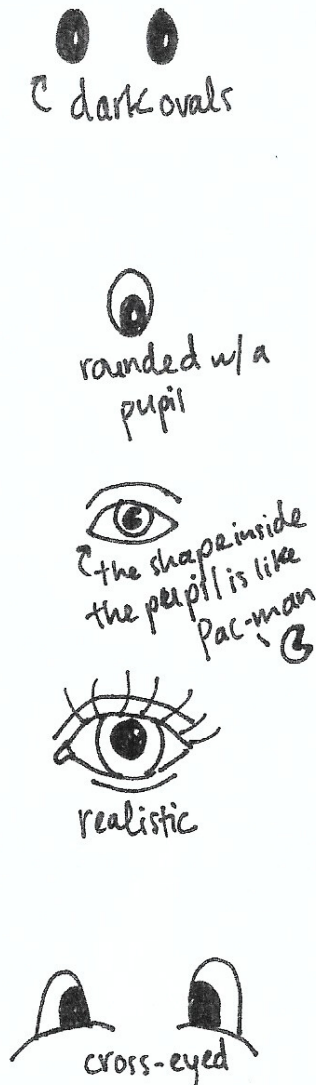 dark ovals
rounded w/ a
pupil
the shape inside
the pupil is like
Pac-man
realistic
cross-eyed